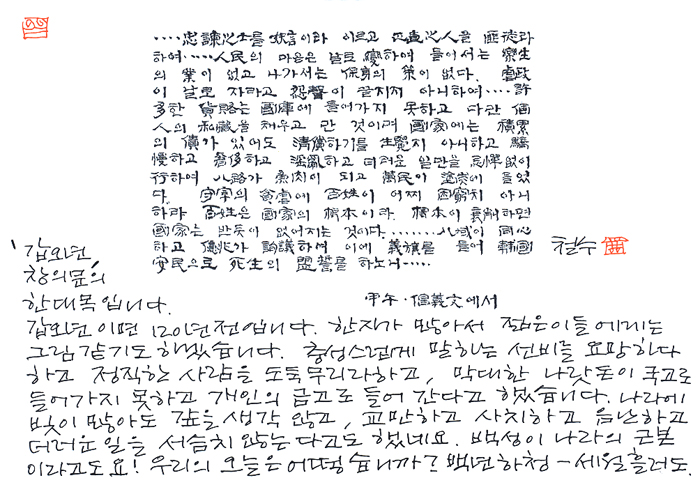 ····忠諫之士를 妖言이라 이르고 正直之人을 匪徒라
하여·····人民의 마음은 날로 變하여 들어서는 樂生
의 業이 없고 나가서는 保身의 策이 없다. 虐政
이 날로 자라고 怨聲이 끊치지 아니하여····許
多한 貨賂는 國庫에 들어가지 못하고 다만 個
人의 私藏을 채우고 만 것이며 國家에는 積累
의 債가 있어도 淸償하기를 生覺지 아니하고 驕
慢하고 奢侈하고 淫亂하고 더러운 일만을 忌憚없이
行하여 八路가 魚肉이 되고 萬民이 塗炭에 들었
다. 守宰의 貪虐에 百姓이 어찌 困窮치 아니
하랴 百姓은 國家의 根本이라. 根本이 衰削하면
國家는 반듯이 없어지는 것이다.········八域이 同心
하고 億兆가 詢議하여 이에 義旗를 들어 輔國
安民으로 死生의 盟誓를 하노니····
甲午·倡義文에서
철수
'갑오년
창의문'의
한대목입니다.
갑오년이면 120년전입니다. 한자가 많아서 젊은이들에게는
그림같기도 하겠습니다. 충성스럽게 말하는 선비를 요망하다
하고 정직한 사람을 도둑무리라하고, 막대한 나랏돈이 국고로
들어가지 못하고 개인의 금고로 들어간다고 했습니다. 나라에
빚이 많아도 갚을 생각 않고, 교만하고 사치하고 음난하고
더러운 일을 서슴치 않는다고도 했네요. 백성이 나라의 근본
이라고도요! 우리의 오늘은 어떻습니까? 백년하청-세월흘러도.